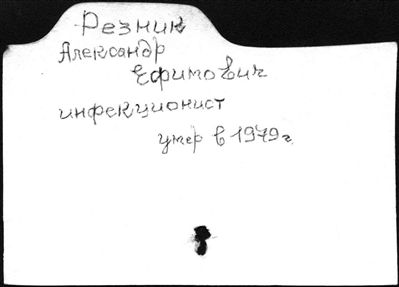 Резник
Александр
Ефимович
инфекционист
умер в 1979 г.